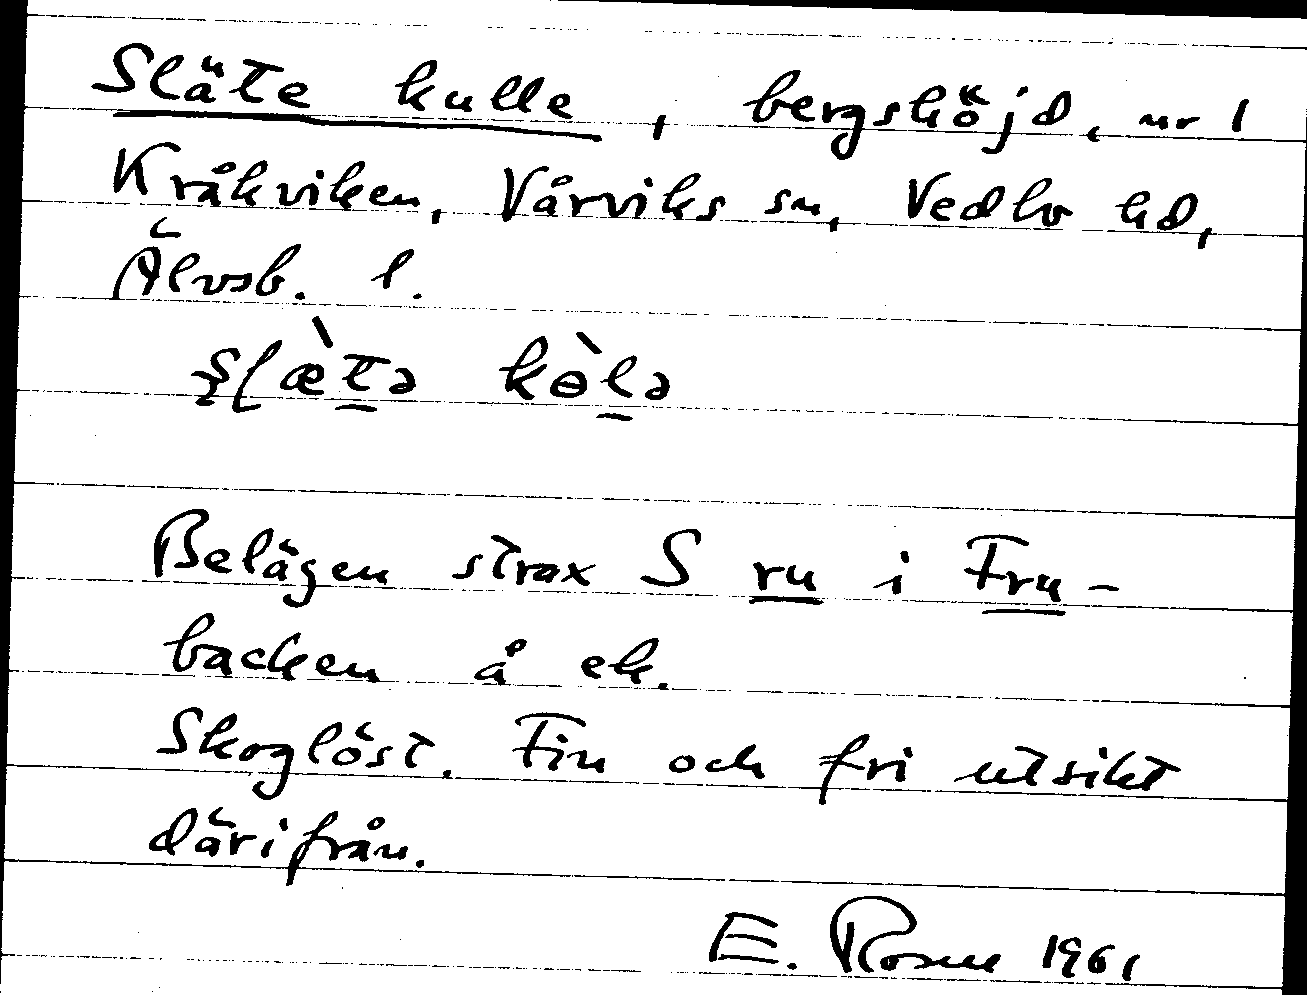 Släte kulle, bergshöjd, nr 1
Kråkviken, Vårviks sn, Vedbo hd,
Älvsb. l.
slæ̀tə kɵ̀lə
Belägen strax S ru i Fru-
backen å ek.
Skoglöst. Fin och fri utsikt
därifrån.
E. Rosen 1961